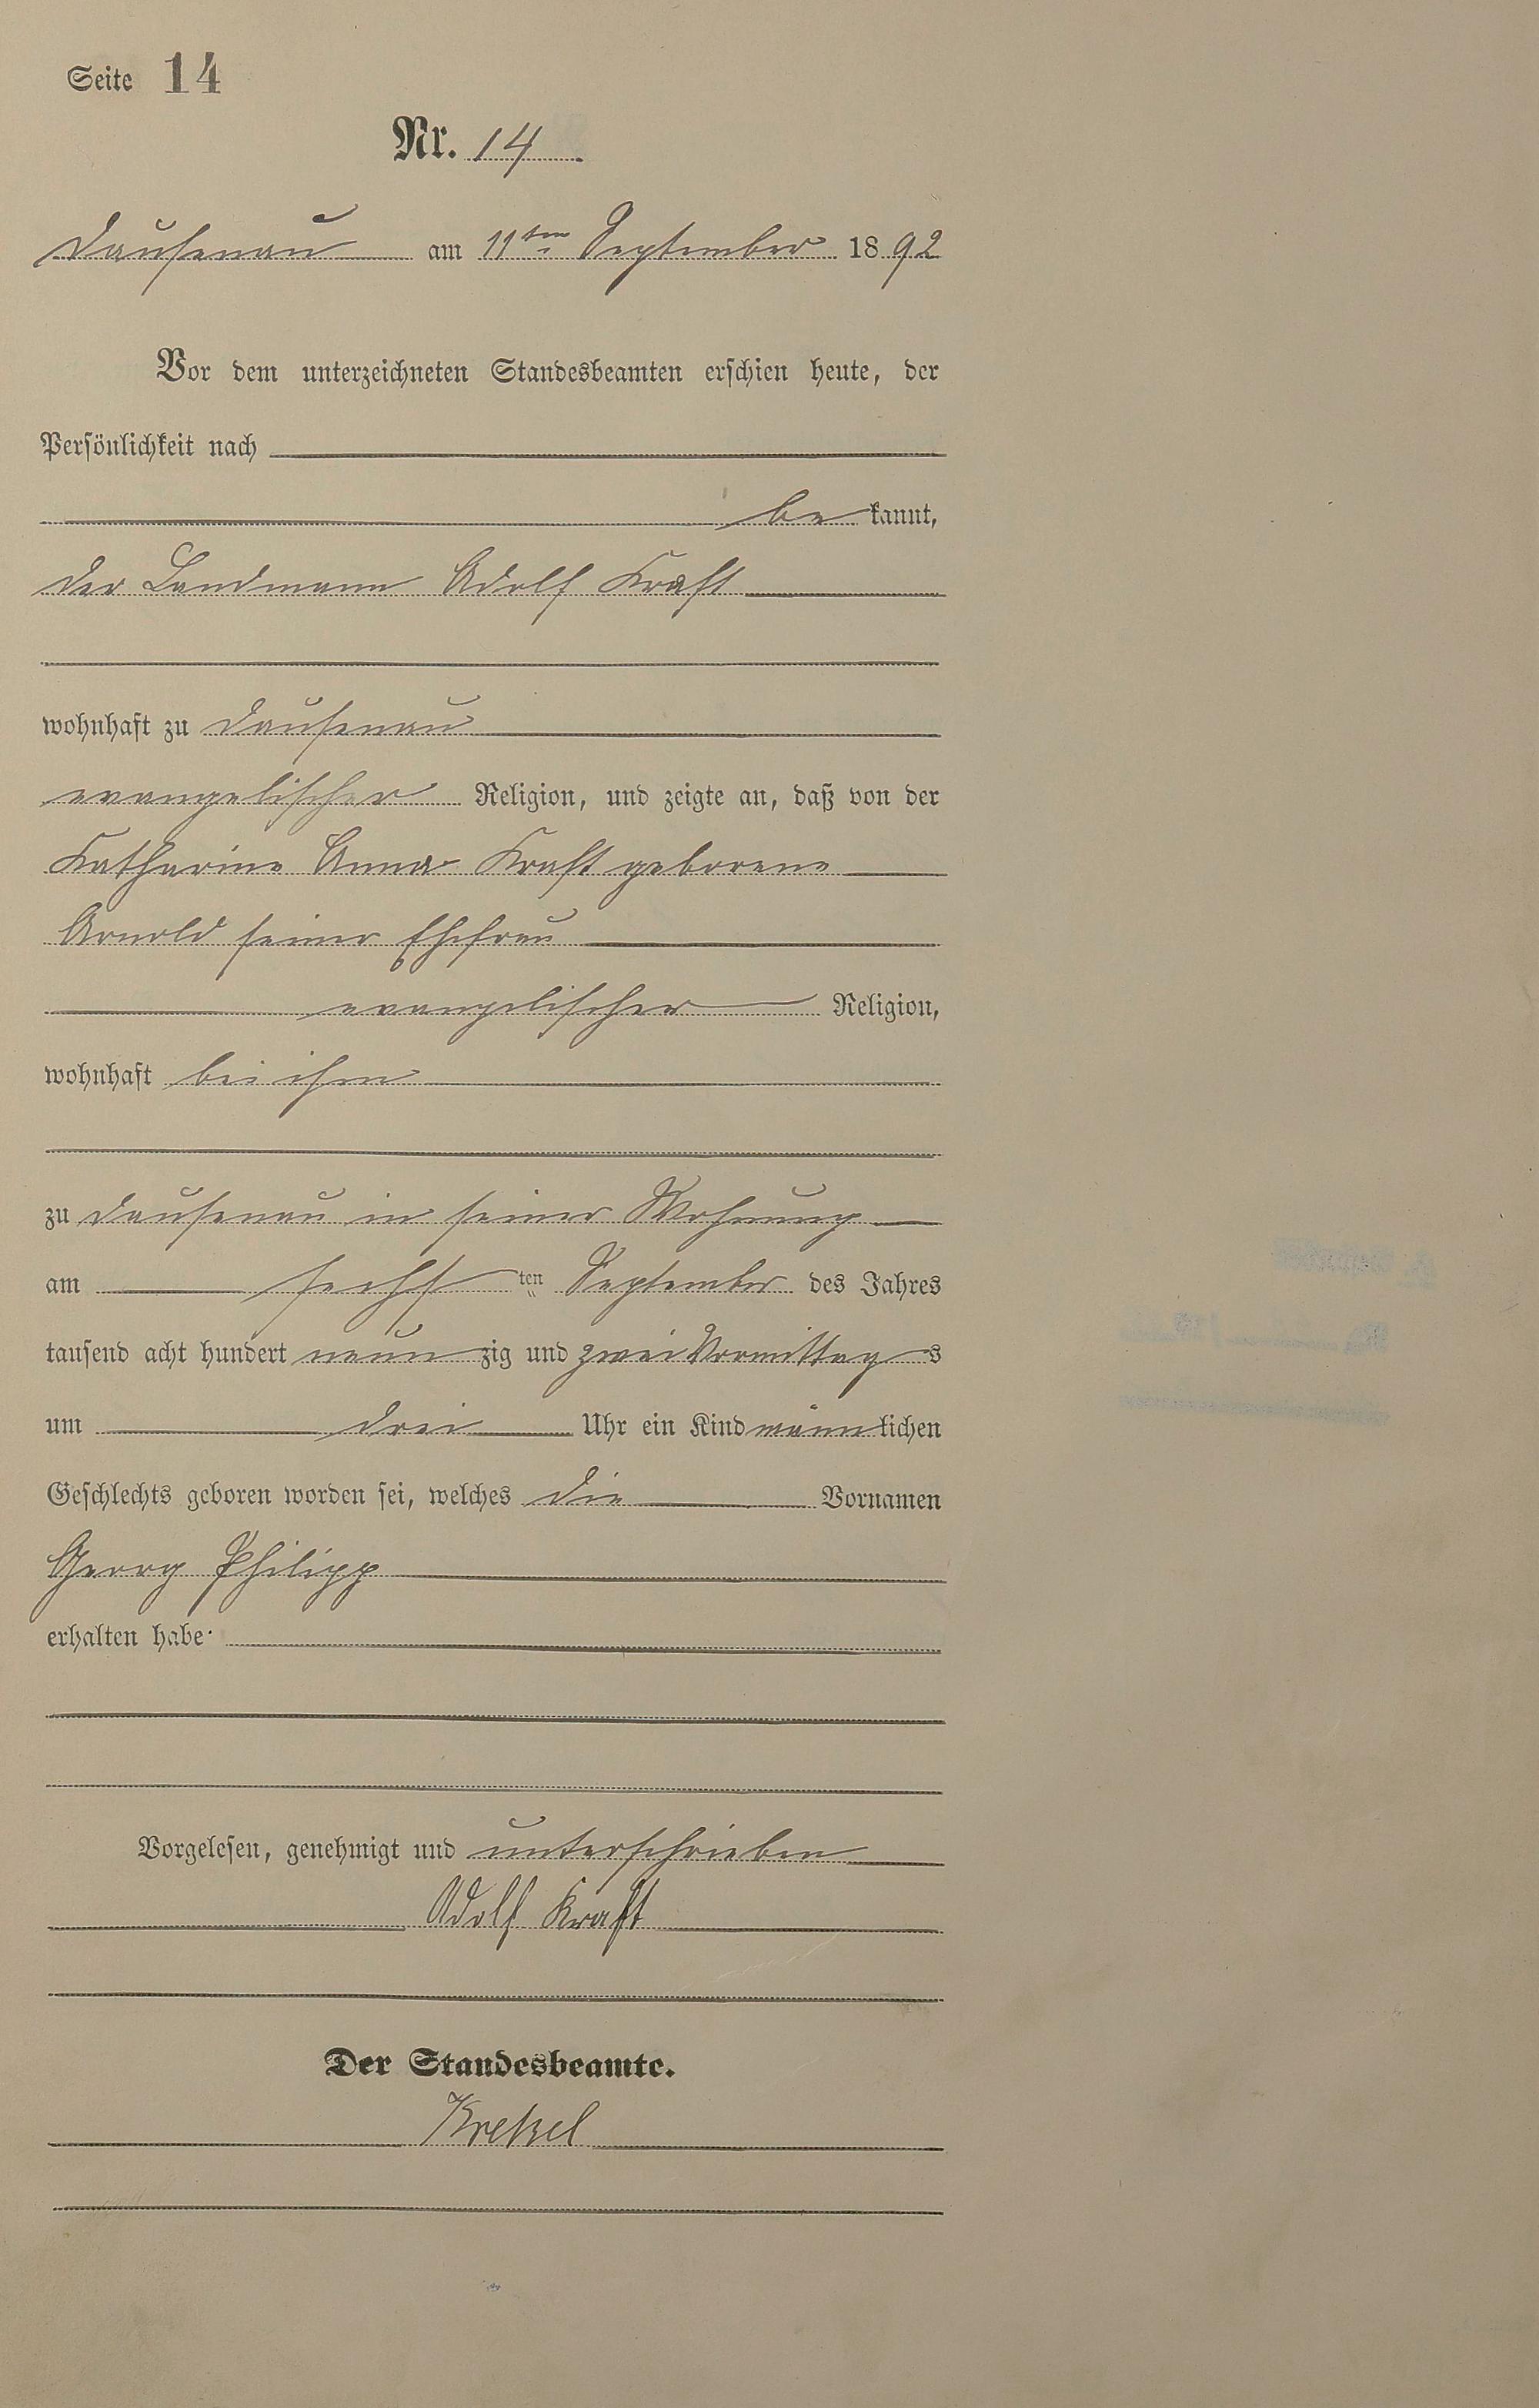 Seite 14
Nr. 14
Dausenau am 11ten September 1892
Vor dem unterzeichneten Standesbeamten erschien heute, der
Persönlichkeit nach
be kannt,
der Landmann Adolf Kraft
wohnhaft zu Dausenau
evangelischer Religion, und zeigte an, daß von der
Katharine Anna Kraft geborene
Arnold seiner Ehefrau
evangelischer Religion,
wohnhaft bei ihm
zu Dausenau in seiner Wohnung
am sechsten September des Jahres
tausend acht hundert neunzig und zwei Vormittags
um drei Uhr ein Kind männlichen
Geschlechts geboren worden sei, welches die Vornamen
Georg Philipp
erhalten habe.
Vorgelesen, genehmigt und unterschrieben
Adolf Kraft
Der Standesbeamte.
Kretzel